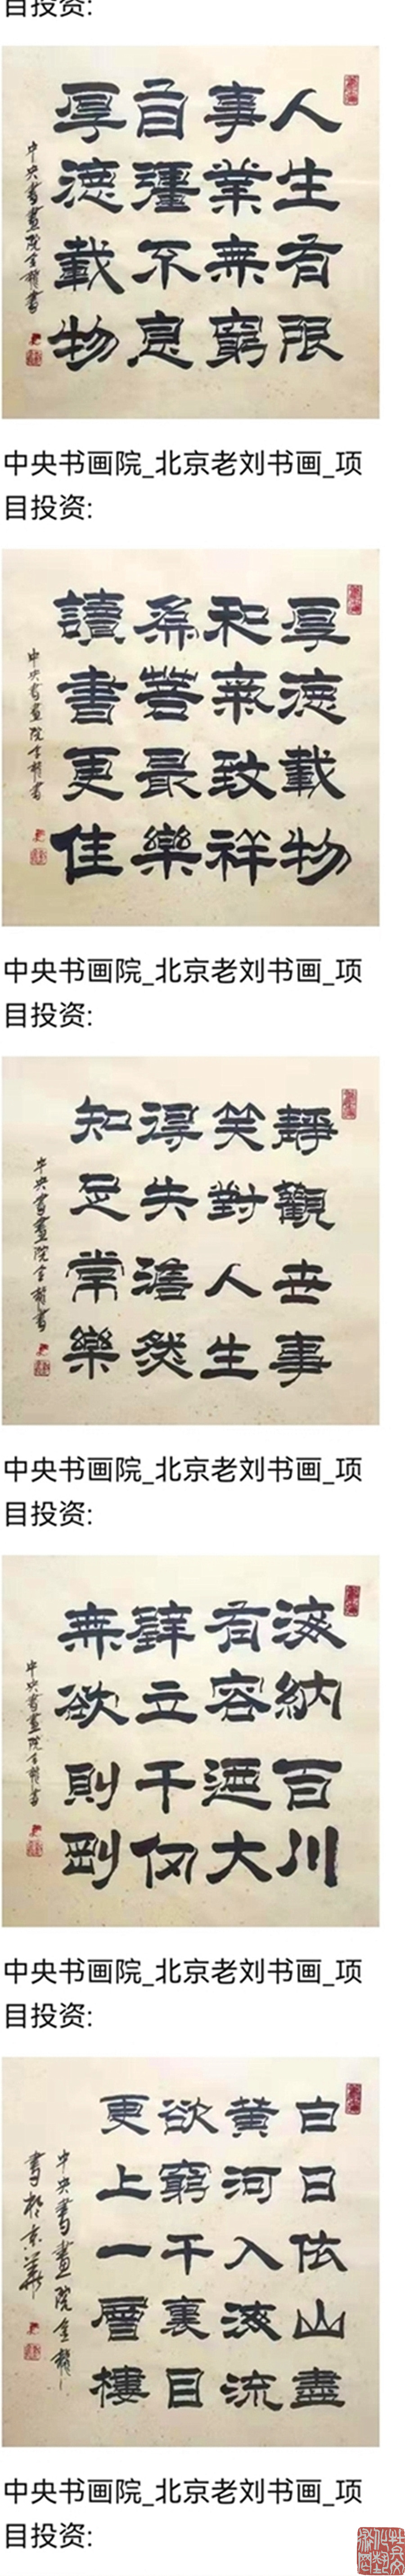 目投资:
人生有限
事業無窮
自彊不息
厚德載物
中央書畫院金龍書
中央书画院_北京老刘书画_项
目投资:
厚德載物
和氣致祥
為善最樂
讀書更佳
中央書畫院金龍書
中央书画院_北京老刘书画_项
目投资:
靜觀世事
笑對人生
得失澹然
知足常樂
中央書畫院金龍書
中央书画院_北京老刘书画_项
目投资:
海納百川
有容迺大
壁立千仞
無欲則剛
中央書畫院金龍書
中央书画院_北京老刘书画_项
目投资:
白日依山盡
黃河入海流
欲窮千裏目
更上一層樓
中央書畫院金龍
書於京華
中央书画院_北京老刘书画_项
目投资: